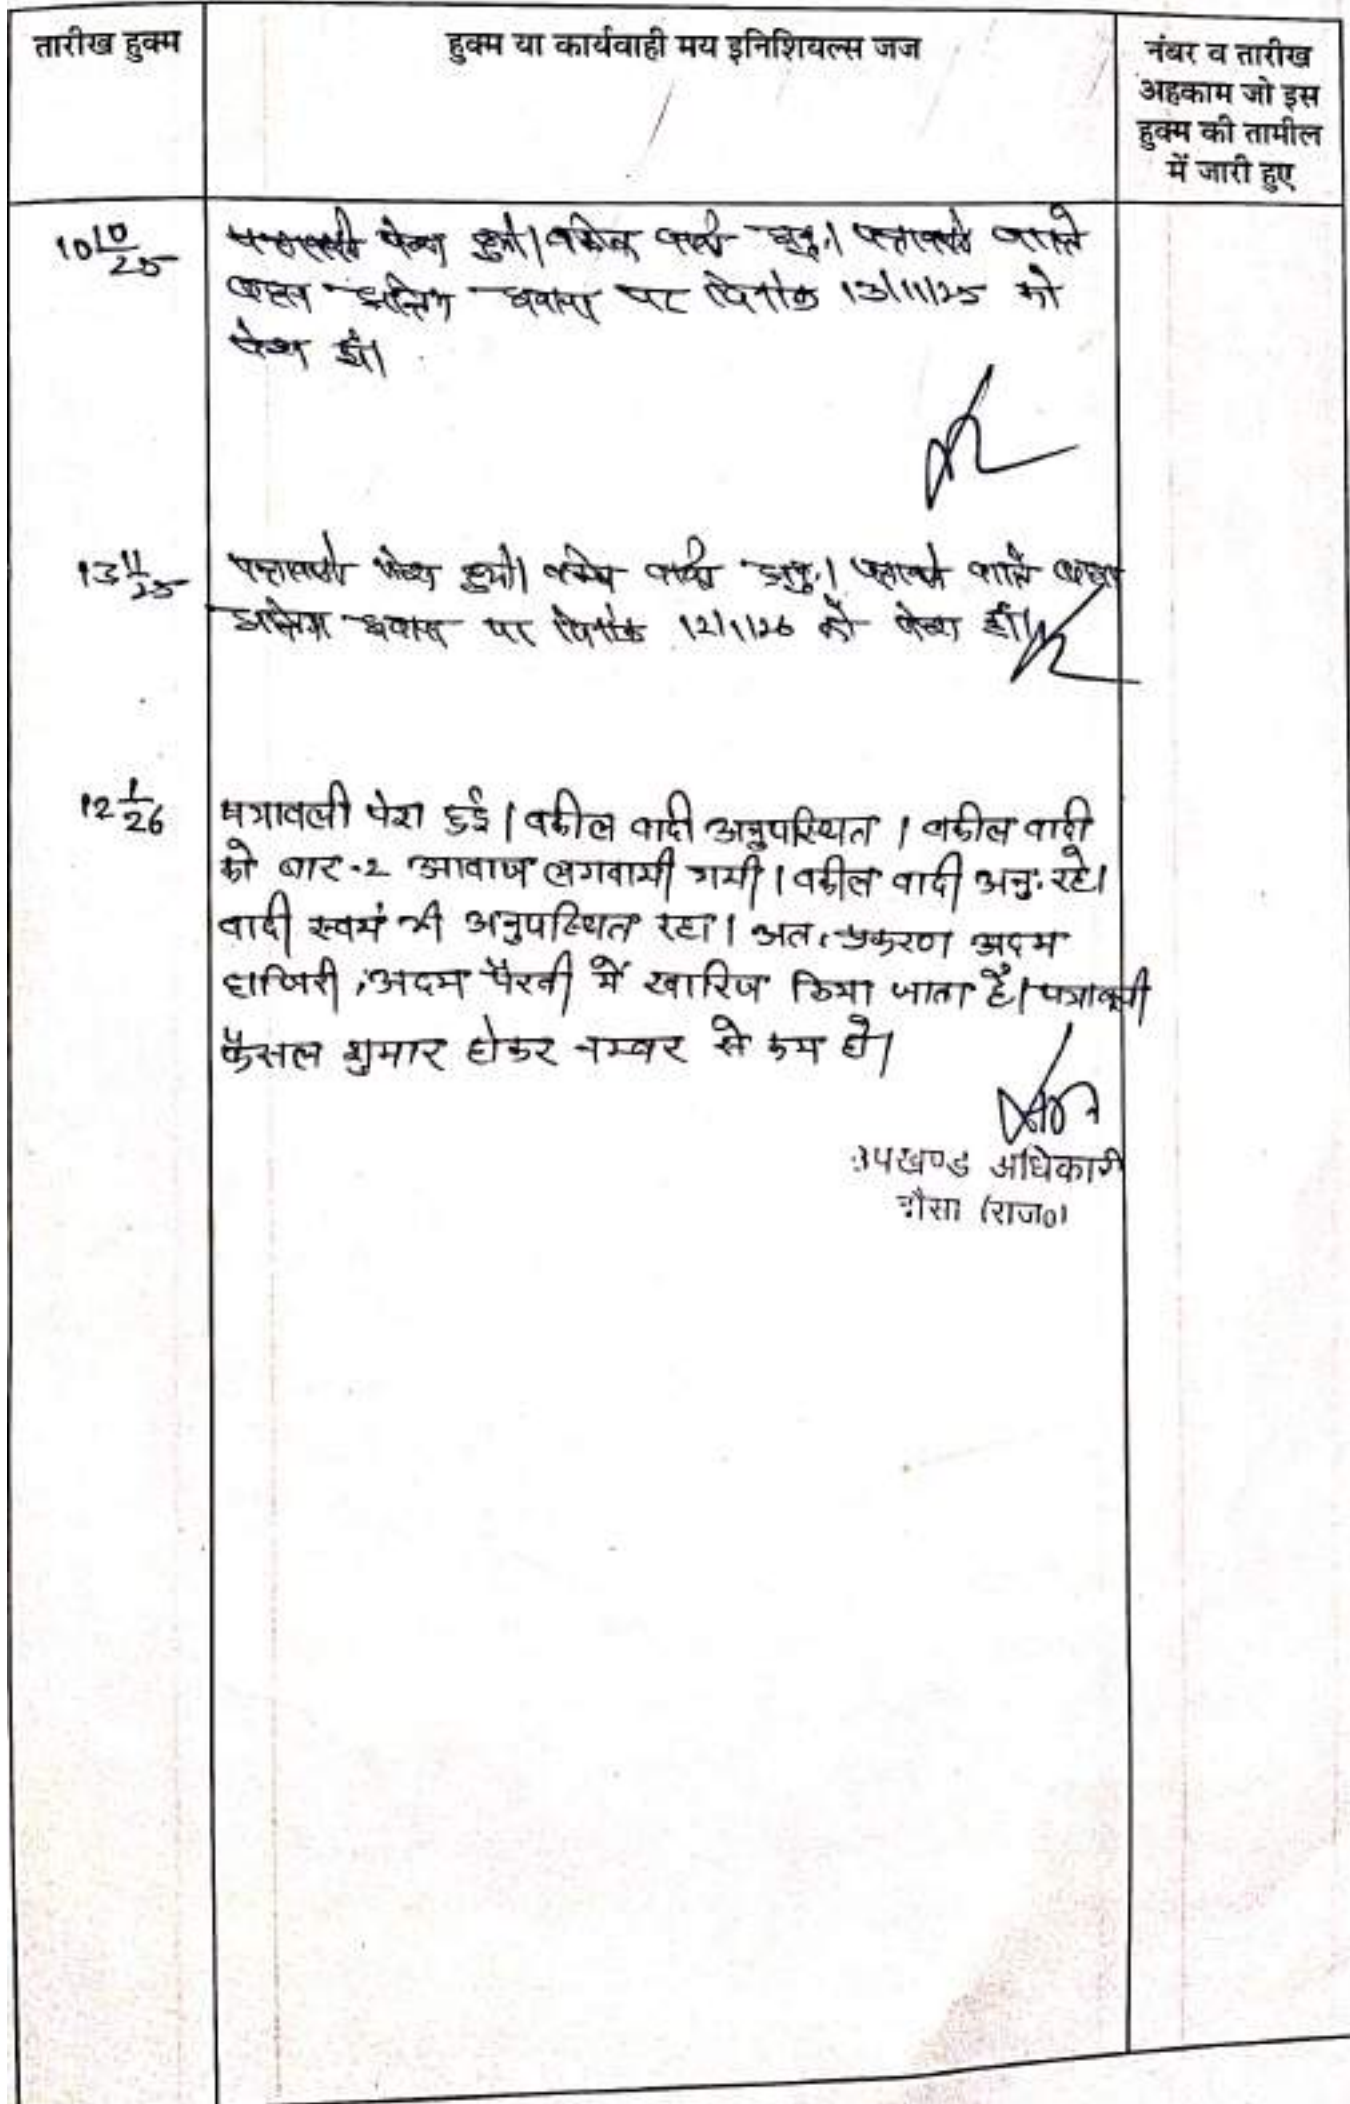 तारीख हुक्म
हुक्म या कार्यवाही मय इनिशियल्स जज
नंबर व तारीख
अहकाम जो इस
हुक्म की तामील
में जारी हुए
10 10/25
पत्रावली पेश हुयी। वकील वादी अनु.। पत्रावली वास्ते
बहस अन्तिम अवसर पर दिनांक 13/11/25 को
पेश हो।
13 11/25
पत्रावली पेश हुयी। वकील वादी अनु.। पत्रावली वास्ते बहस
अन्तिम अवसर पर दिनांक 12/1/26 को पेश हो।
12 1/26
पत्रावली पेश हुई। वकील वादी अनुपस्थित। वकील वादी
को बार-2 आवाज लगवायी गयी। वकील वादी अनु. रहे।
वादी स्वयं भी अनुपस्थित रहा। अतः प्रकरण अदम
हाजिरी, अदम पैरवी में खारिज किया जाता है। पत्रावली
फैसल शुमार होकर नम्बर से कम हो।
उपखण्ड अधिकारी
दौसा (राज०)